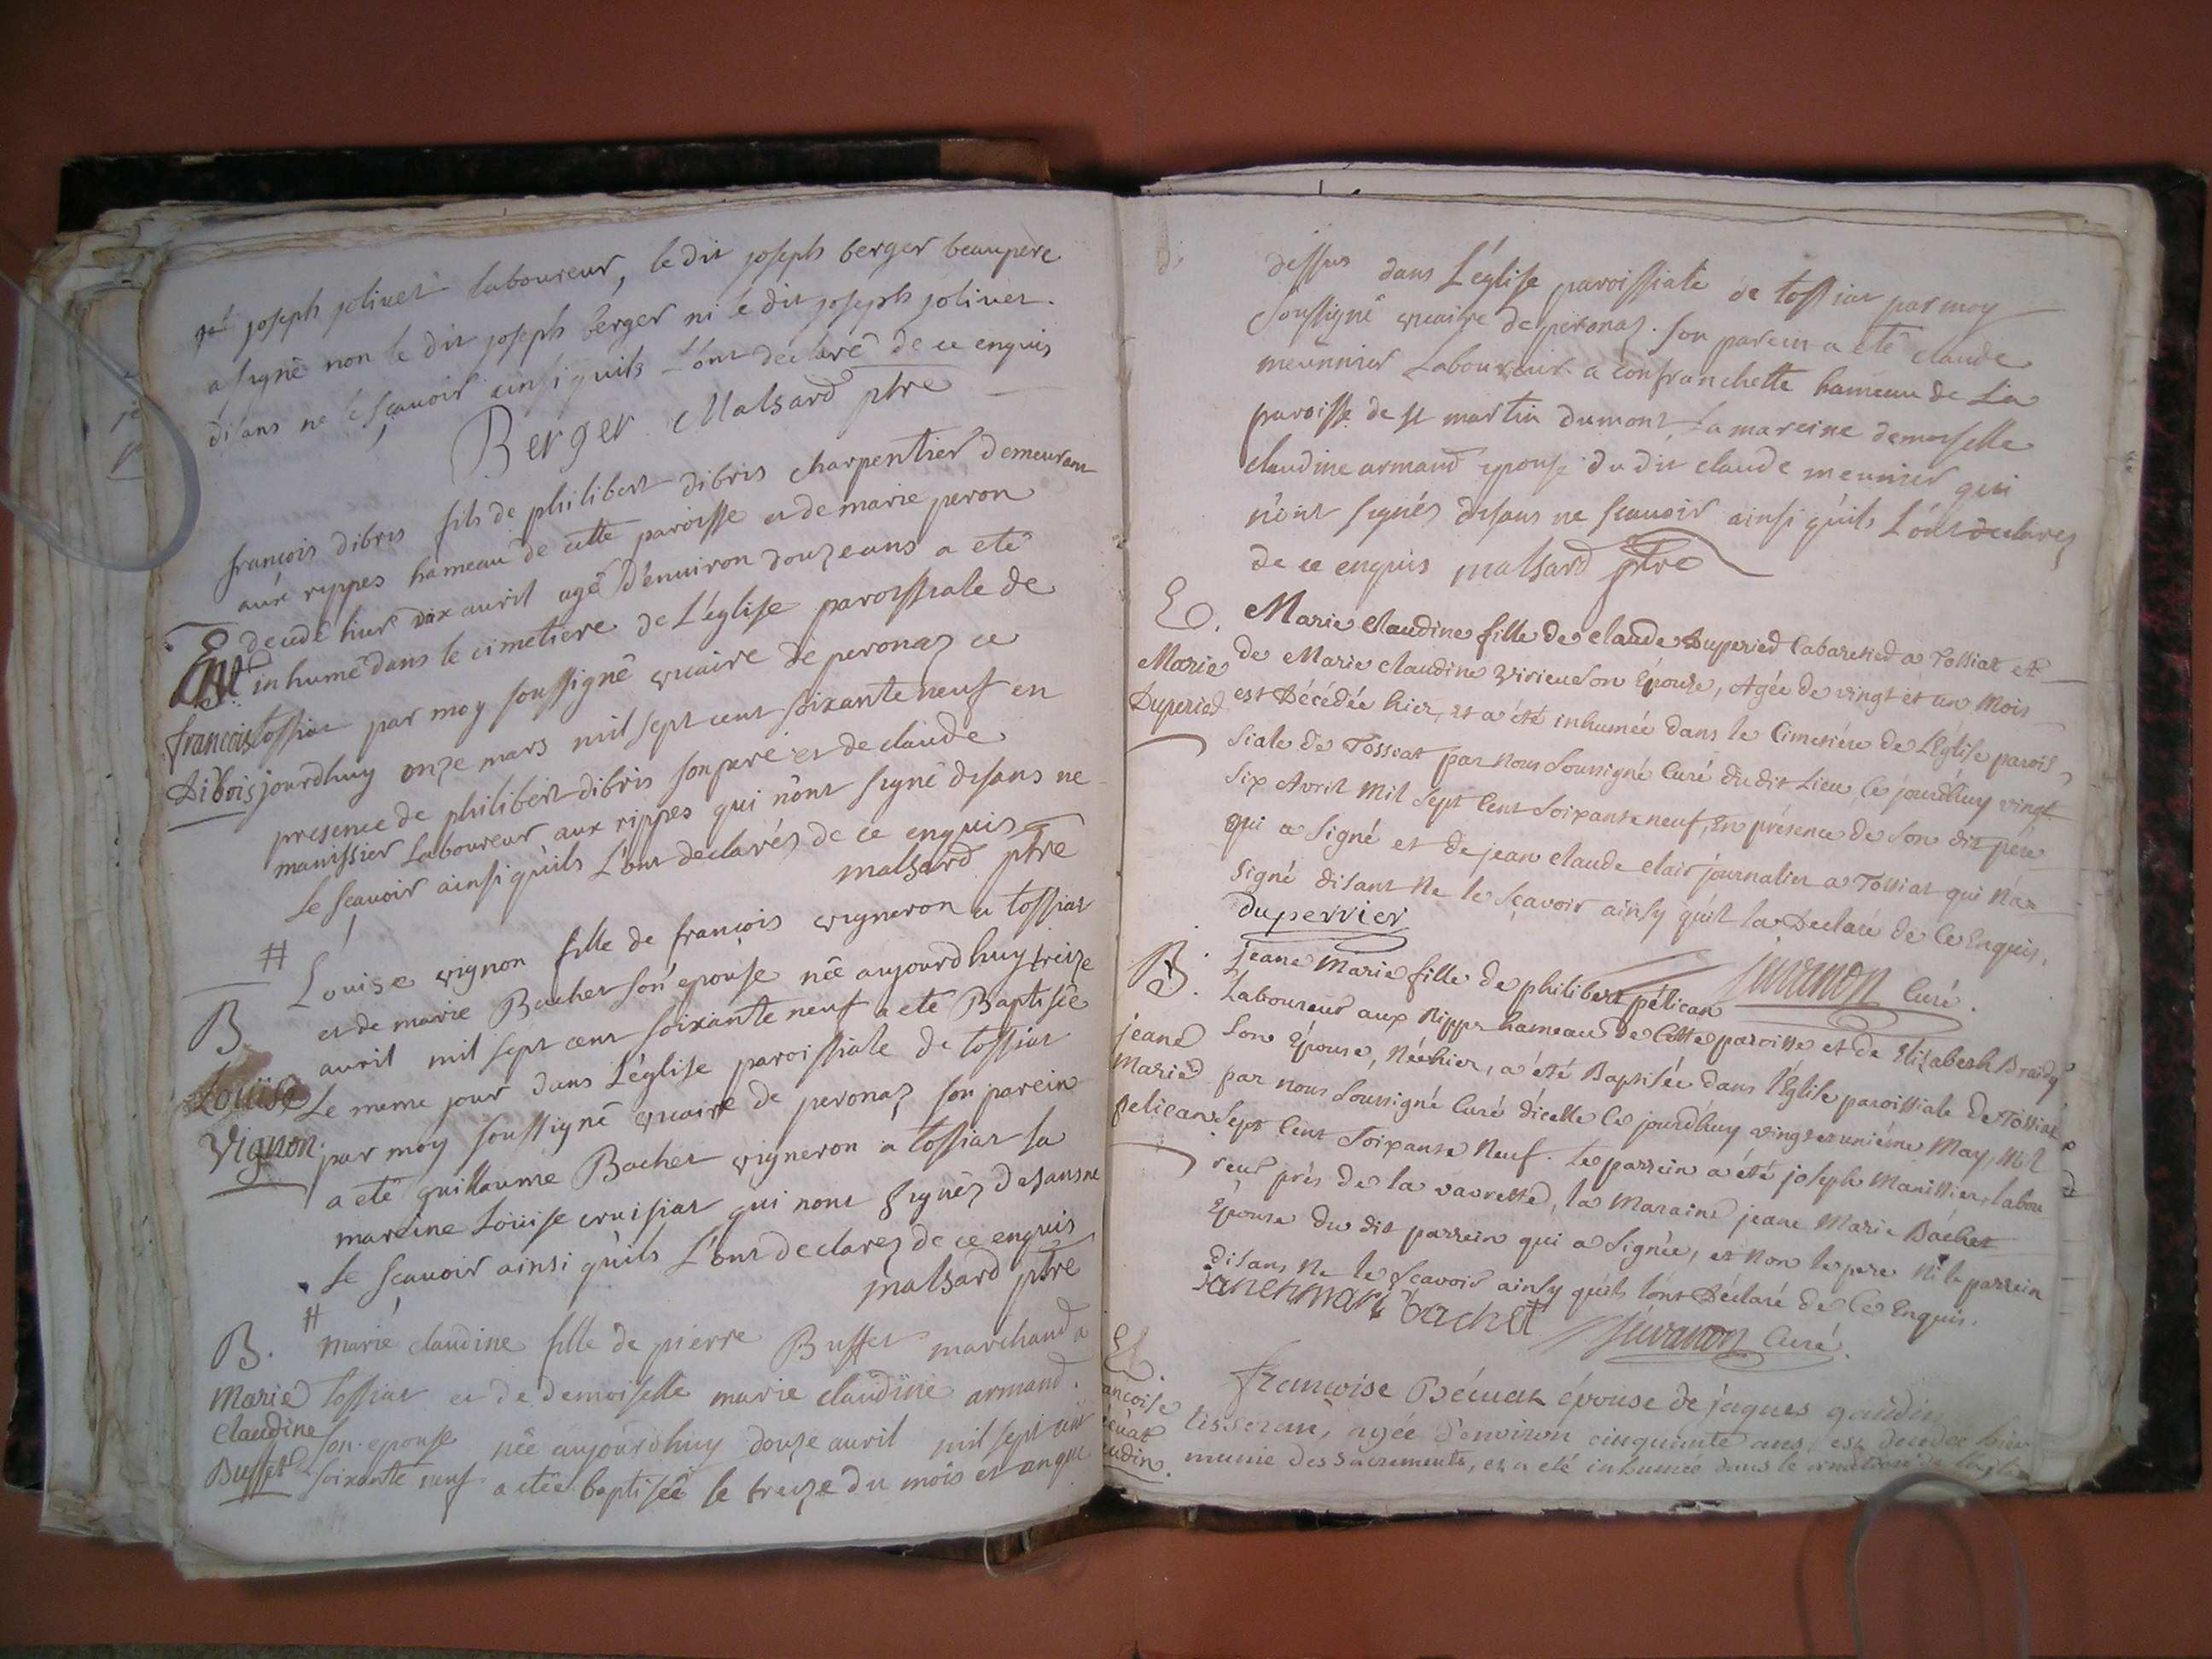 joseph jolivet laboureur, le dit joseph berger beaupere
a signé non le dit joseph berger ni le dit joseph jolivet
disans ne le scavoir ainsi quils L'ont declaré de ce enquis
Berger Malsard ptre
françois dibris fils de philibert dibris charpentier demeurant
aux rippes hameau de cette paroisse et de marie peron
decedé hier dix avril agé d'environ douze ans a eté
E
inhumé dans le cimetiere de L'église paroissiale de
françois tossiat par moy soussigné vicaire de peronaz ce
Dibois jourdhuy onze mars mil sept cent soixante neuf en
presence de philibert dibris son pere et de claude
manissier Laboureur aux rippes qui n'ont signé disans ne
le scavoir ainsi qu'ils L'ont declarés de ce enquis
malsard ptre
#
Louise vignon fille de françois vigneron a tossiat
B. et de marie Bachet son epouse née aujourdhuy treize
avril mil sept cent soixante neuf a eté Baptisée
Louise Le meme jour dans L'église paroissiale de tossiat
Vignon. par moy soussigné vicaire de peronaz son parein
a eté guillaume Bachet vigneron a tossiat sa
mareine Louise cruisiat qui nont signés disans ne
le scavoir ainsi qu'ils L'ont declarez de ce enquis
malsard ptre
#
B. marie claudine fille de pierre Buffet marchand a
Marie tossiat et de demoiselle marie claudine armand
Claudine son epouse née aujourdhuy douze avril mil sept cent
Buffet soixante neuf a etée baptisée le treize du mois et an que
dessus dans L'église paroissiale de tossiat par moy
soussigné vicaire de peronaz. son parein a eté claude
meunnier Laboureur a confranchette hameau de La
paroisse de st martin dumont, La mareine demoiselle
claudine armand epouse du dit claude meunier qui
n'ont signés disans ne scavoir ainsi qu'ils L'ont declarez
de ce enquis malsard ptre
E. Marie Claudine fille de claude Duperied Cabaretied a Tossiat et
Marie de Marie claudine Virieu son Epouse, Agée de vingt et un Mois
Duperied est Décédée hier, et a été inhumée dans le Cimetiére de L'Eglise parois
siale de Tossiat par Nous Soussigné Curé du dit Lieu, ce jourdhuy vingt
Six Avril Mil Sept Cent Soixante neuf, En présence de Son dit père
qui a Signé et de jean claude clair journalier a Tossiat qui N'a
Signé disant Ne le Sçavoir ainsy qu'il la Declaré de Ce Enquis.
duperrier
Juvanon Curé.
B. jeane Marie fille de philibert pélican
Laboureur aux Ripps hameau de Cette paroisse et de Elizabeth Braidy
jeane Son Epouse, Née hier, a été Baptisée dans l'Eglise paroissiale de Tossiat
Marie par nous Soussigné Curé d'icelle ce jourdhuy vingt et uniéme May, Mil
pelican Sept Cent Soixante Neuf. Le parrein a été joseph Manissier, labou
reur près de la vavrette, la Maraine jeane Marie Bachet
Epouse du dit parrein qui a Signée, et Non le pere Ni le parrein
disans Ne le Sçavoir ainsy qu'ils l'ont Déclaré de Ce Enquis.
janenmari bachet
Juvanon Curé.
E.
françoise Bécuat épouse de jaques gaudin
tisserant, agée d'environ cinquante ans, est decedee hier
munie des Sacrements, et a eté inhumée dans le cimetiere de